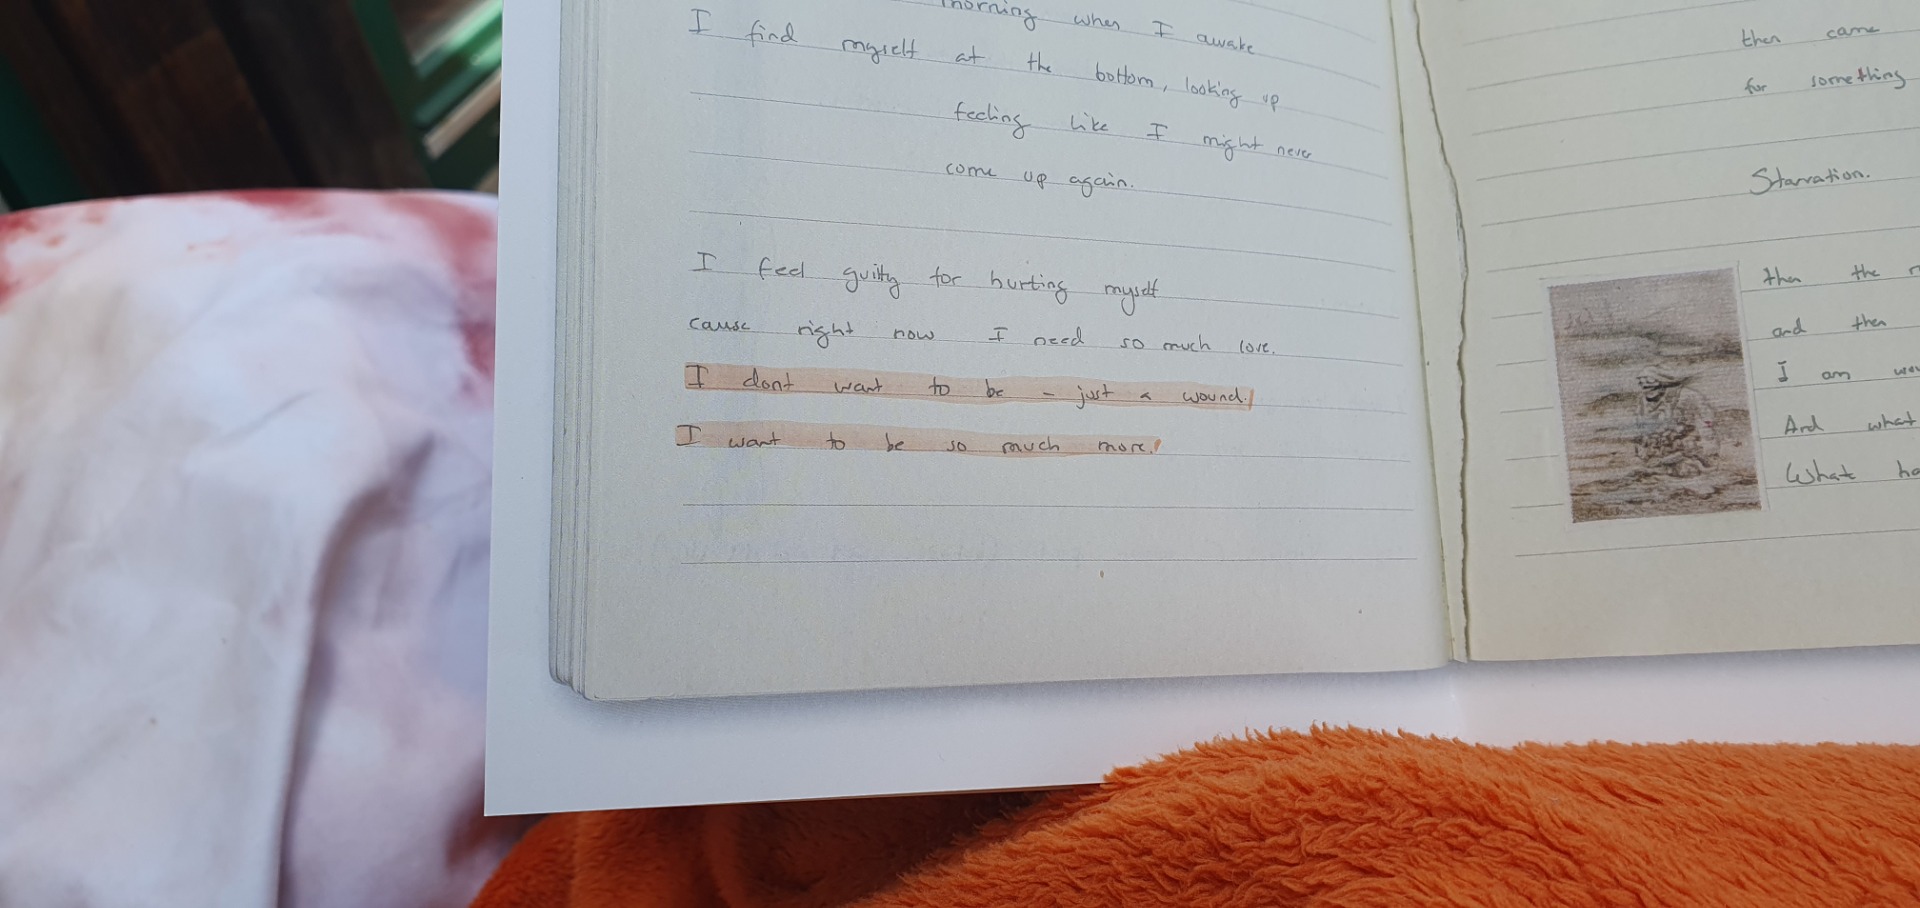 morning when I awake
I find myself at the bottom, looking up
feeling like I might never
come up again.
I feel guilty for hurting myself
cause right now I need so much love.
I dont want to be - just a wound.
I want to be so much more!
then came
for something
Starvation.
then the
and then
I am
And what
What